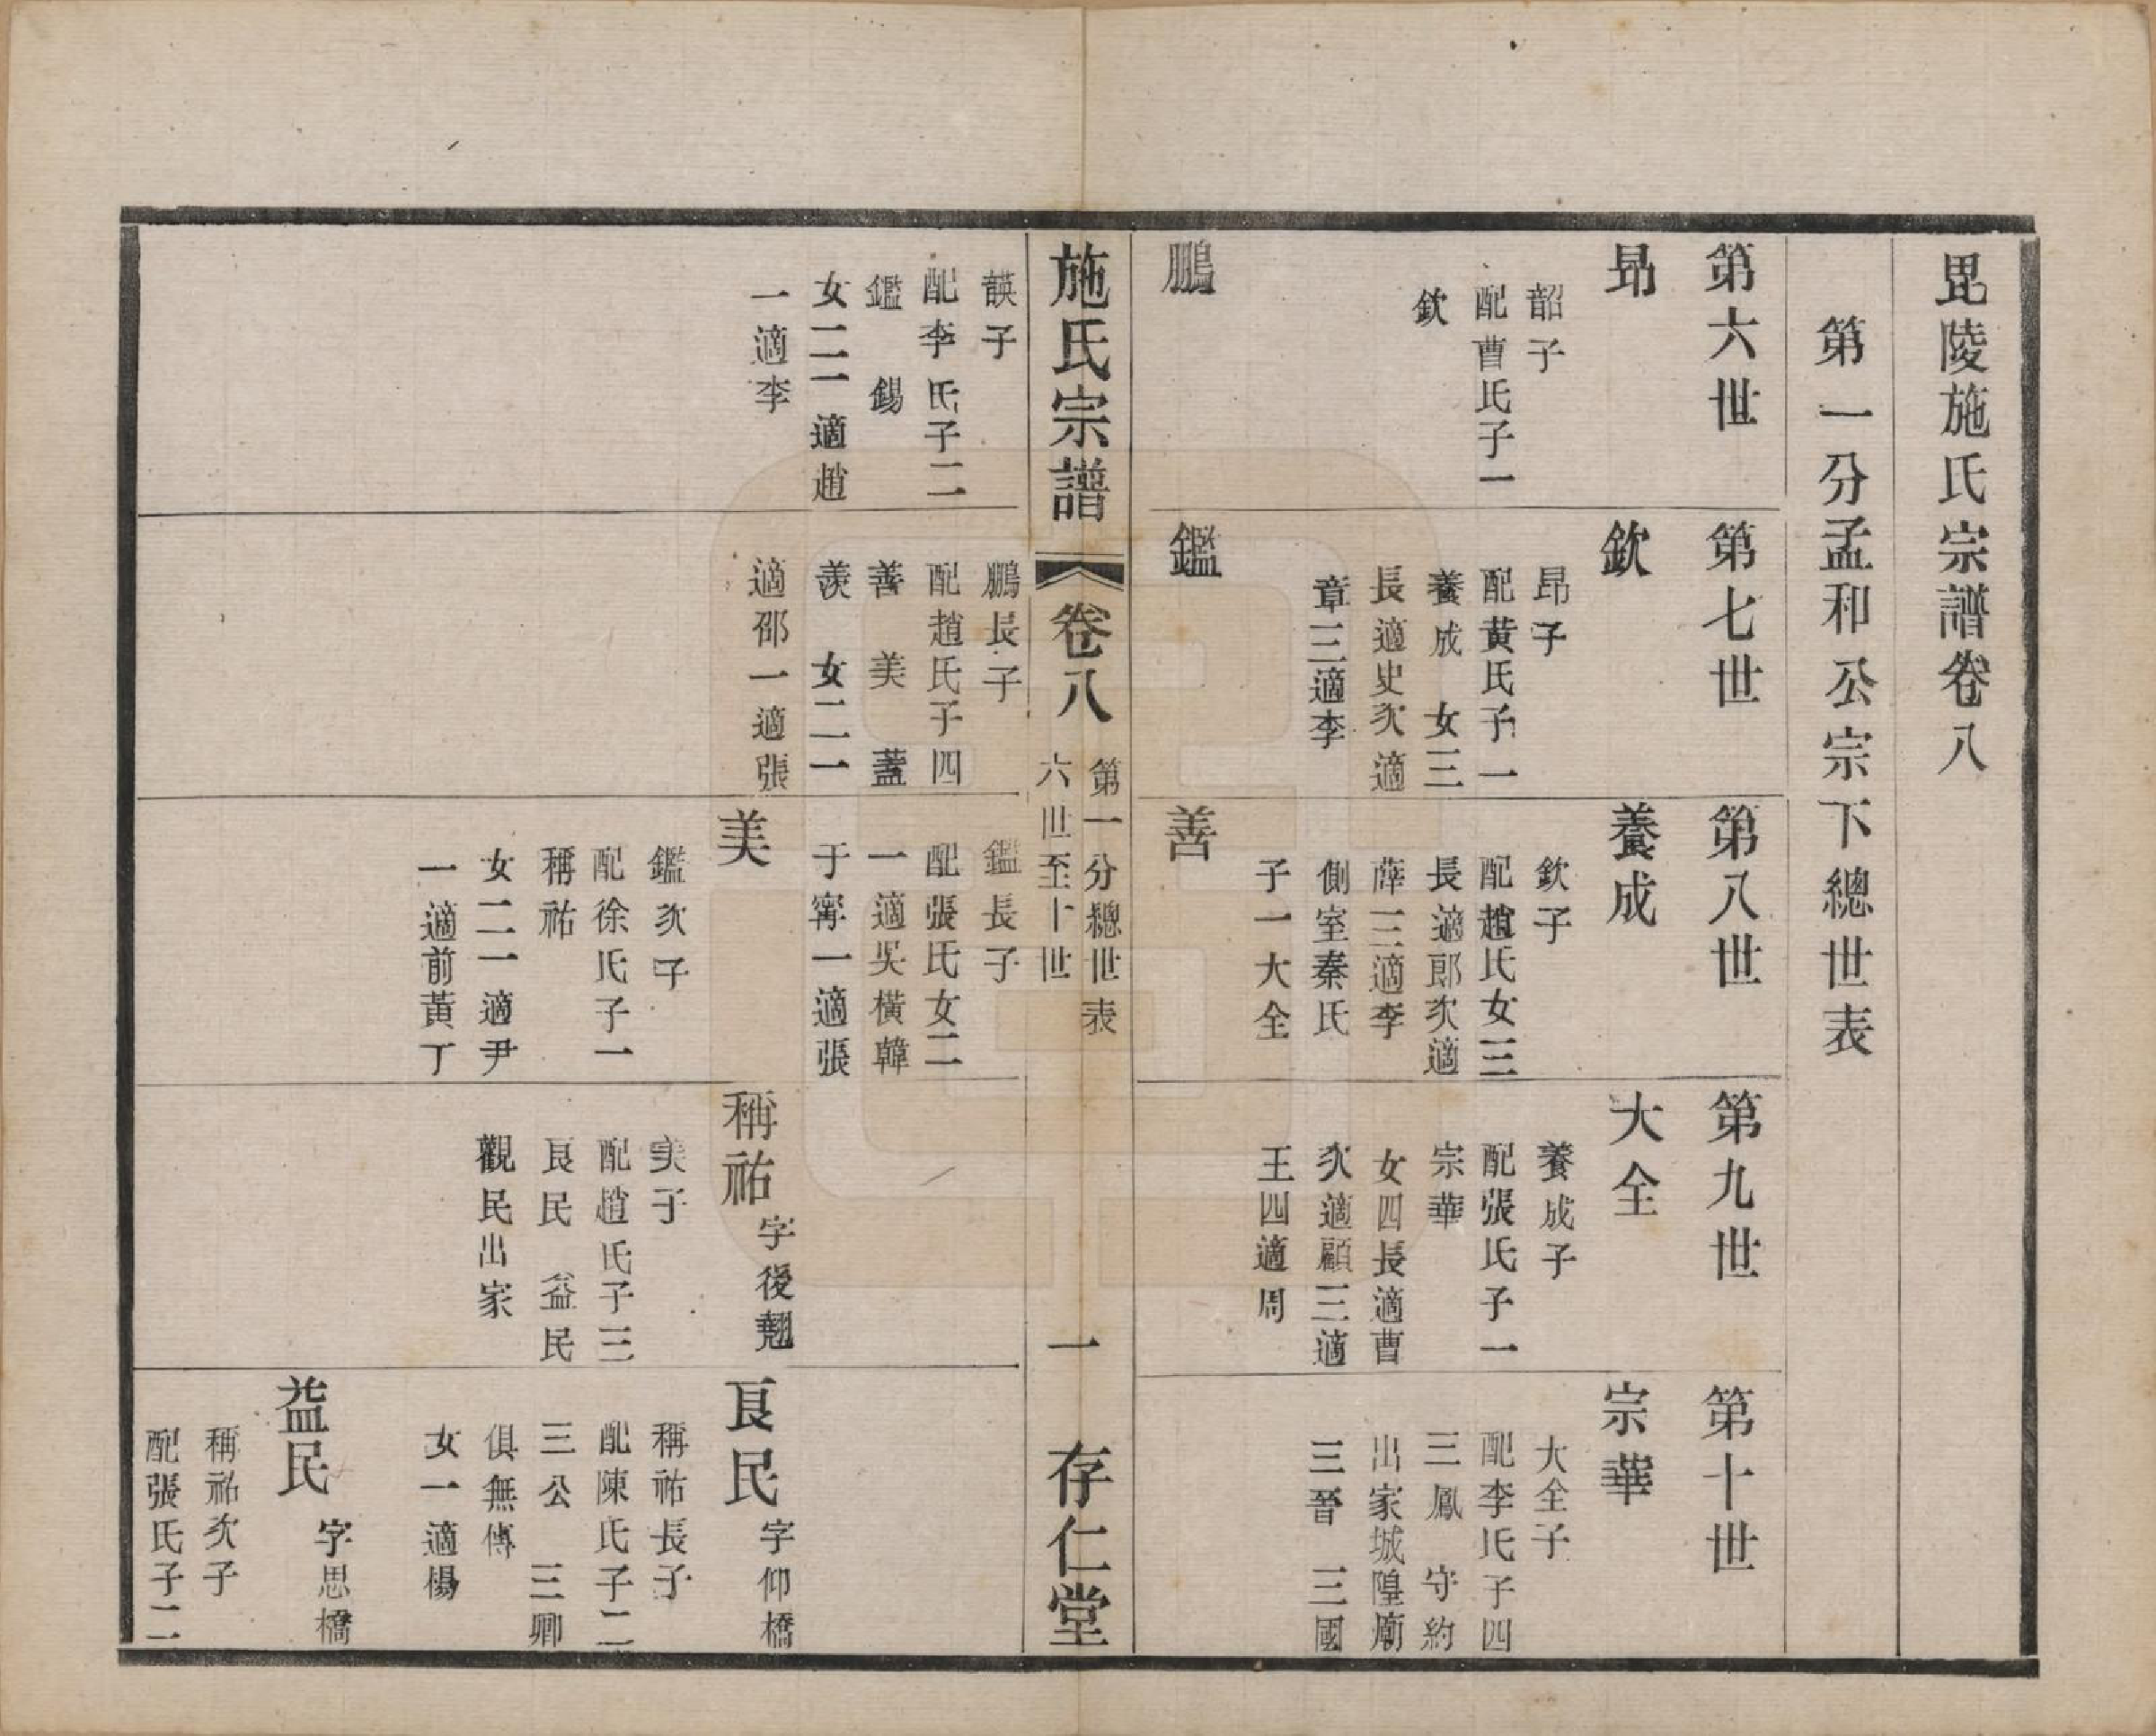 毘陵施氏宗譜卷八
第一分孟和公宗下總世表
第六世
昂
韶子
配曹氏子一
欽
鵬
第七世
欽
昂子
配黃氏子一
養成　女三
長適史次適
章三適李
鑑
第八世
養成
欽子
配趙氏女三
長適郎次適
薛三適李
側室秦氏
子一大全
善
第九世
大全
養成子
配張氏子一
宗華
女四長適曹
次適顧三適
王四適周
第十世
宗華
大全子
配李氏子四
三鳳　守約
出家城隍廟
三晉　三國
施氏宗譜
卷八
第一分總世表
六世至十世
一
存仁堂
韺子
配李氏子二
鑑　錫
女二一適趙
一適李
鵬長子
配趙氏子四
善　美　蓋
羨　女二一
適邵一適張
鑑長子
配張氏女二
一適吳橫韓
于甯一適張
美
鑑次子
配徐氏子一
稱祐
女二一適尹
一適前黃丁
稱祐
字後翹
美子
配趙氏子三
良民　益民
觀民出家
良民
字仰橋
稱祐長子
配陳氏子二
三公　三卿
俱無傳
女一適楊
益民
字思橋
稱祐次子
配張氏子二